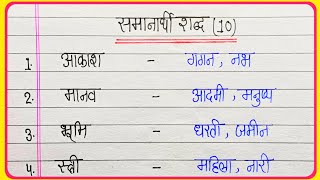 समानार्थी शब्द (10)
1. आकाश - गगन, नभ
2. मानव - आदमी, मनुष्य
3. भूमि - धरती, जमीन
4. स्त्री - महिला, नारी